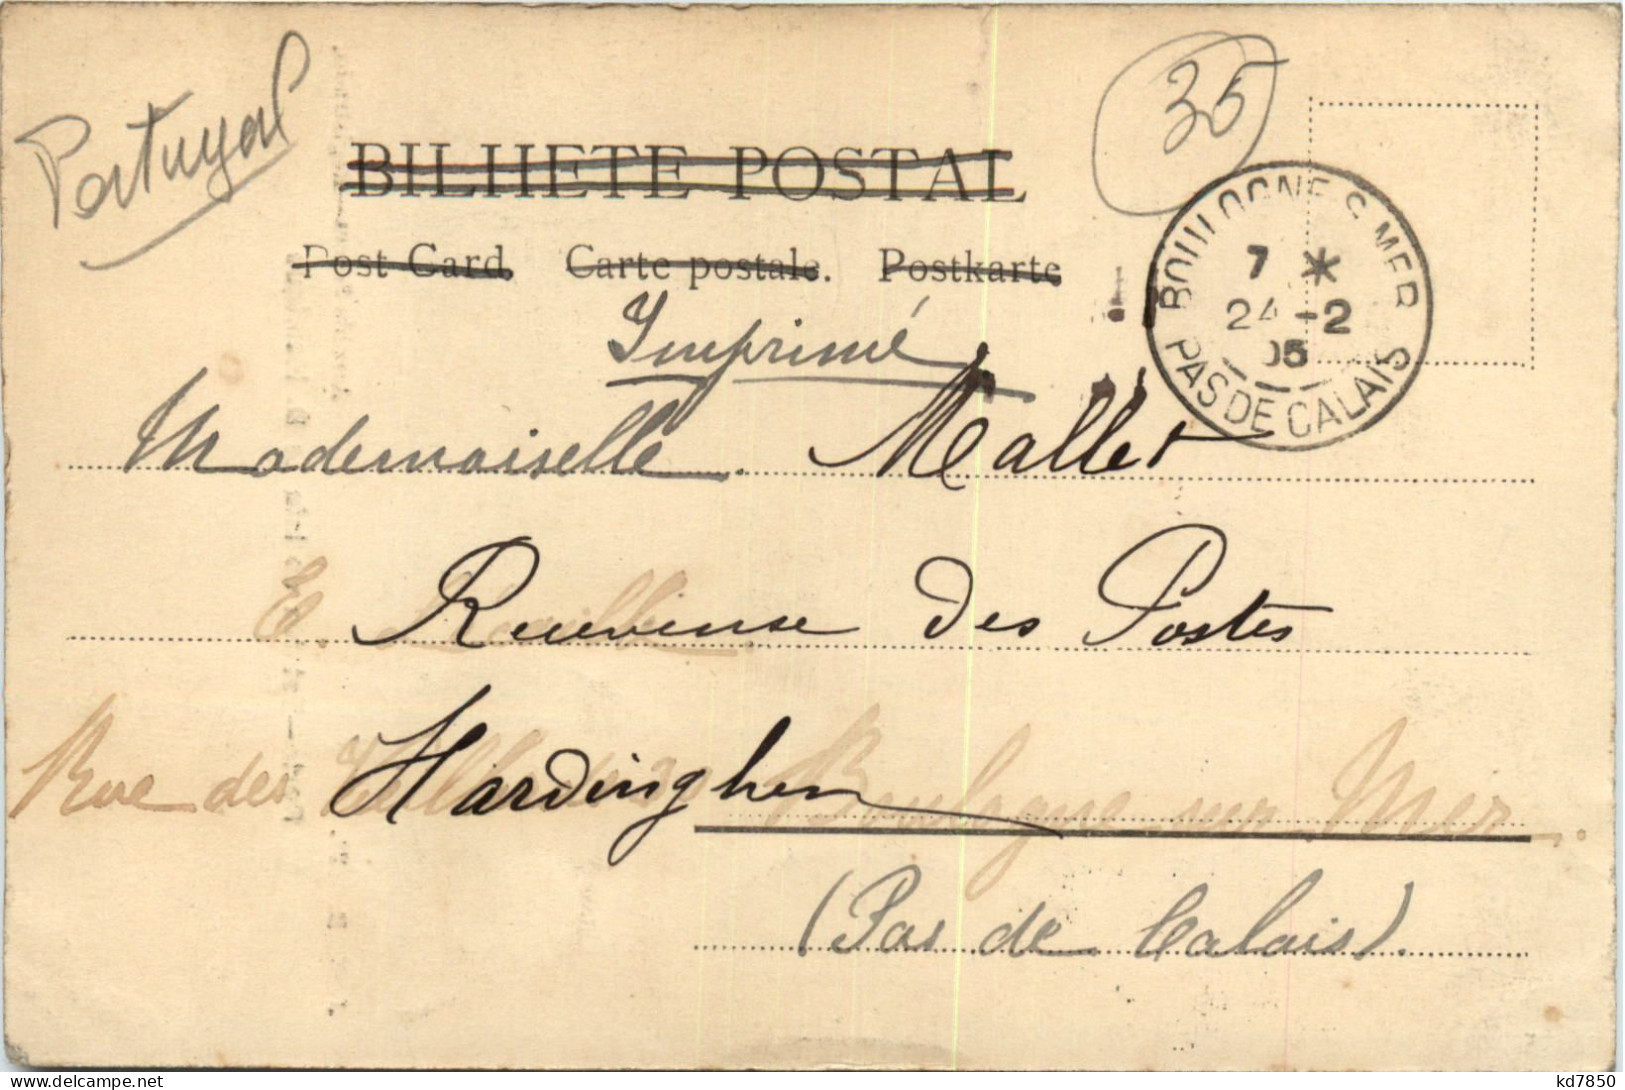 Portugal
35
BILHETE POSTAL
Post Card Carte postale. Postkarte
BOULOGNE S MER
7 *
24 -2
05
PAS DE CALAIS
Imprimé
Mademoiselle Mallet
E.
Receveuse des Postes
Rue des
Hardinghen
Boulogne sur Mer.
(Pas de Calais).
kd7850